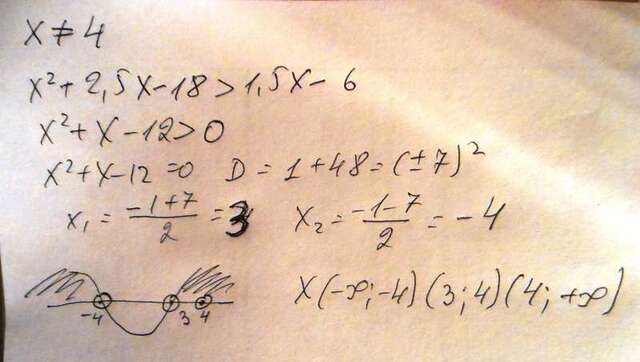 x ≠ 4
x² + 2,5x - 18 > 1,5x - 6
x² + x - 12 > 0
x² + x - 12 = 0 D = 1 + 48 = (±7)²
x₁ = (-1+7)/2 = 3 x₂ = (-1-7)/2 = -4
-4 3 4
x (-∞; -4) (3; 4) (4; +∞)